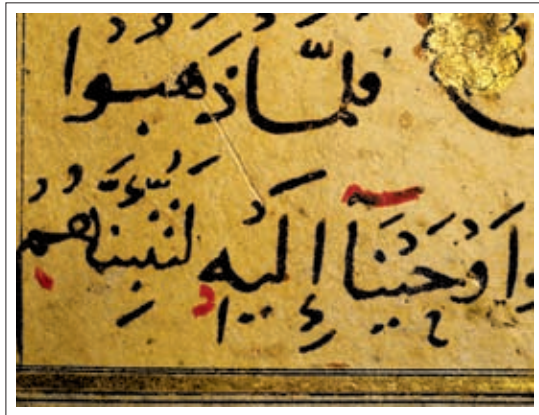 فَلَمَّا ذَهَبُوا
وَاَوْحَيْنَآ إِلَيْهِ لَتُنَبِّئَنَّهُمْ